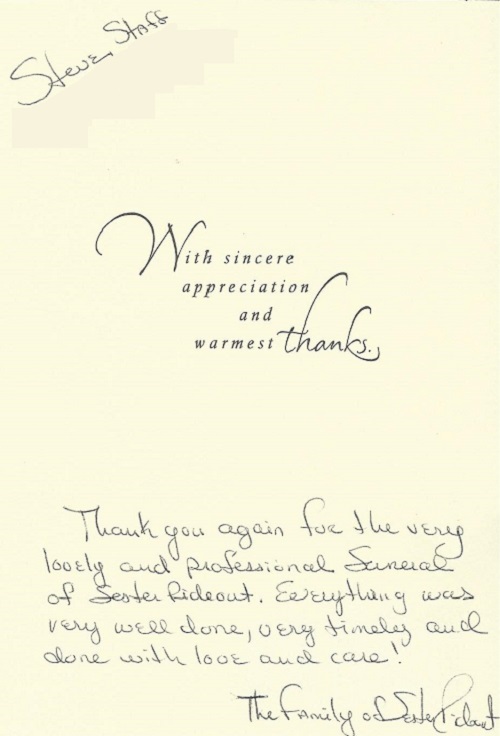 Steve, Staff
With sincere
appreciation
and
warmest thanks.
Thank you again for the very
lovely and professional Funeral
of Lester Rideout. Everything was
very well done, very timely and
done with love and care!
The Family of Lester Rideout